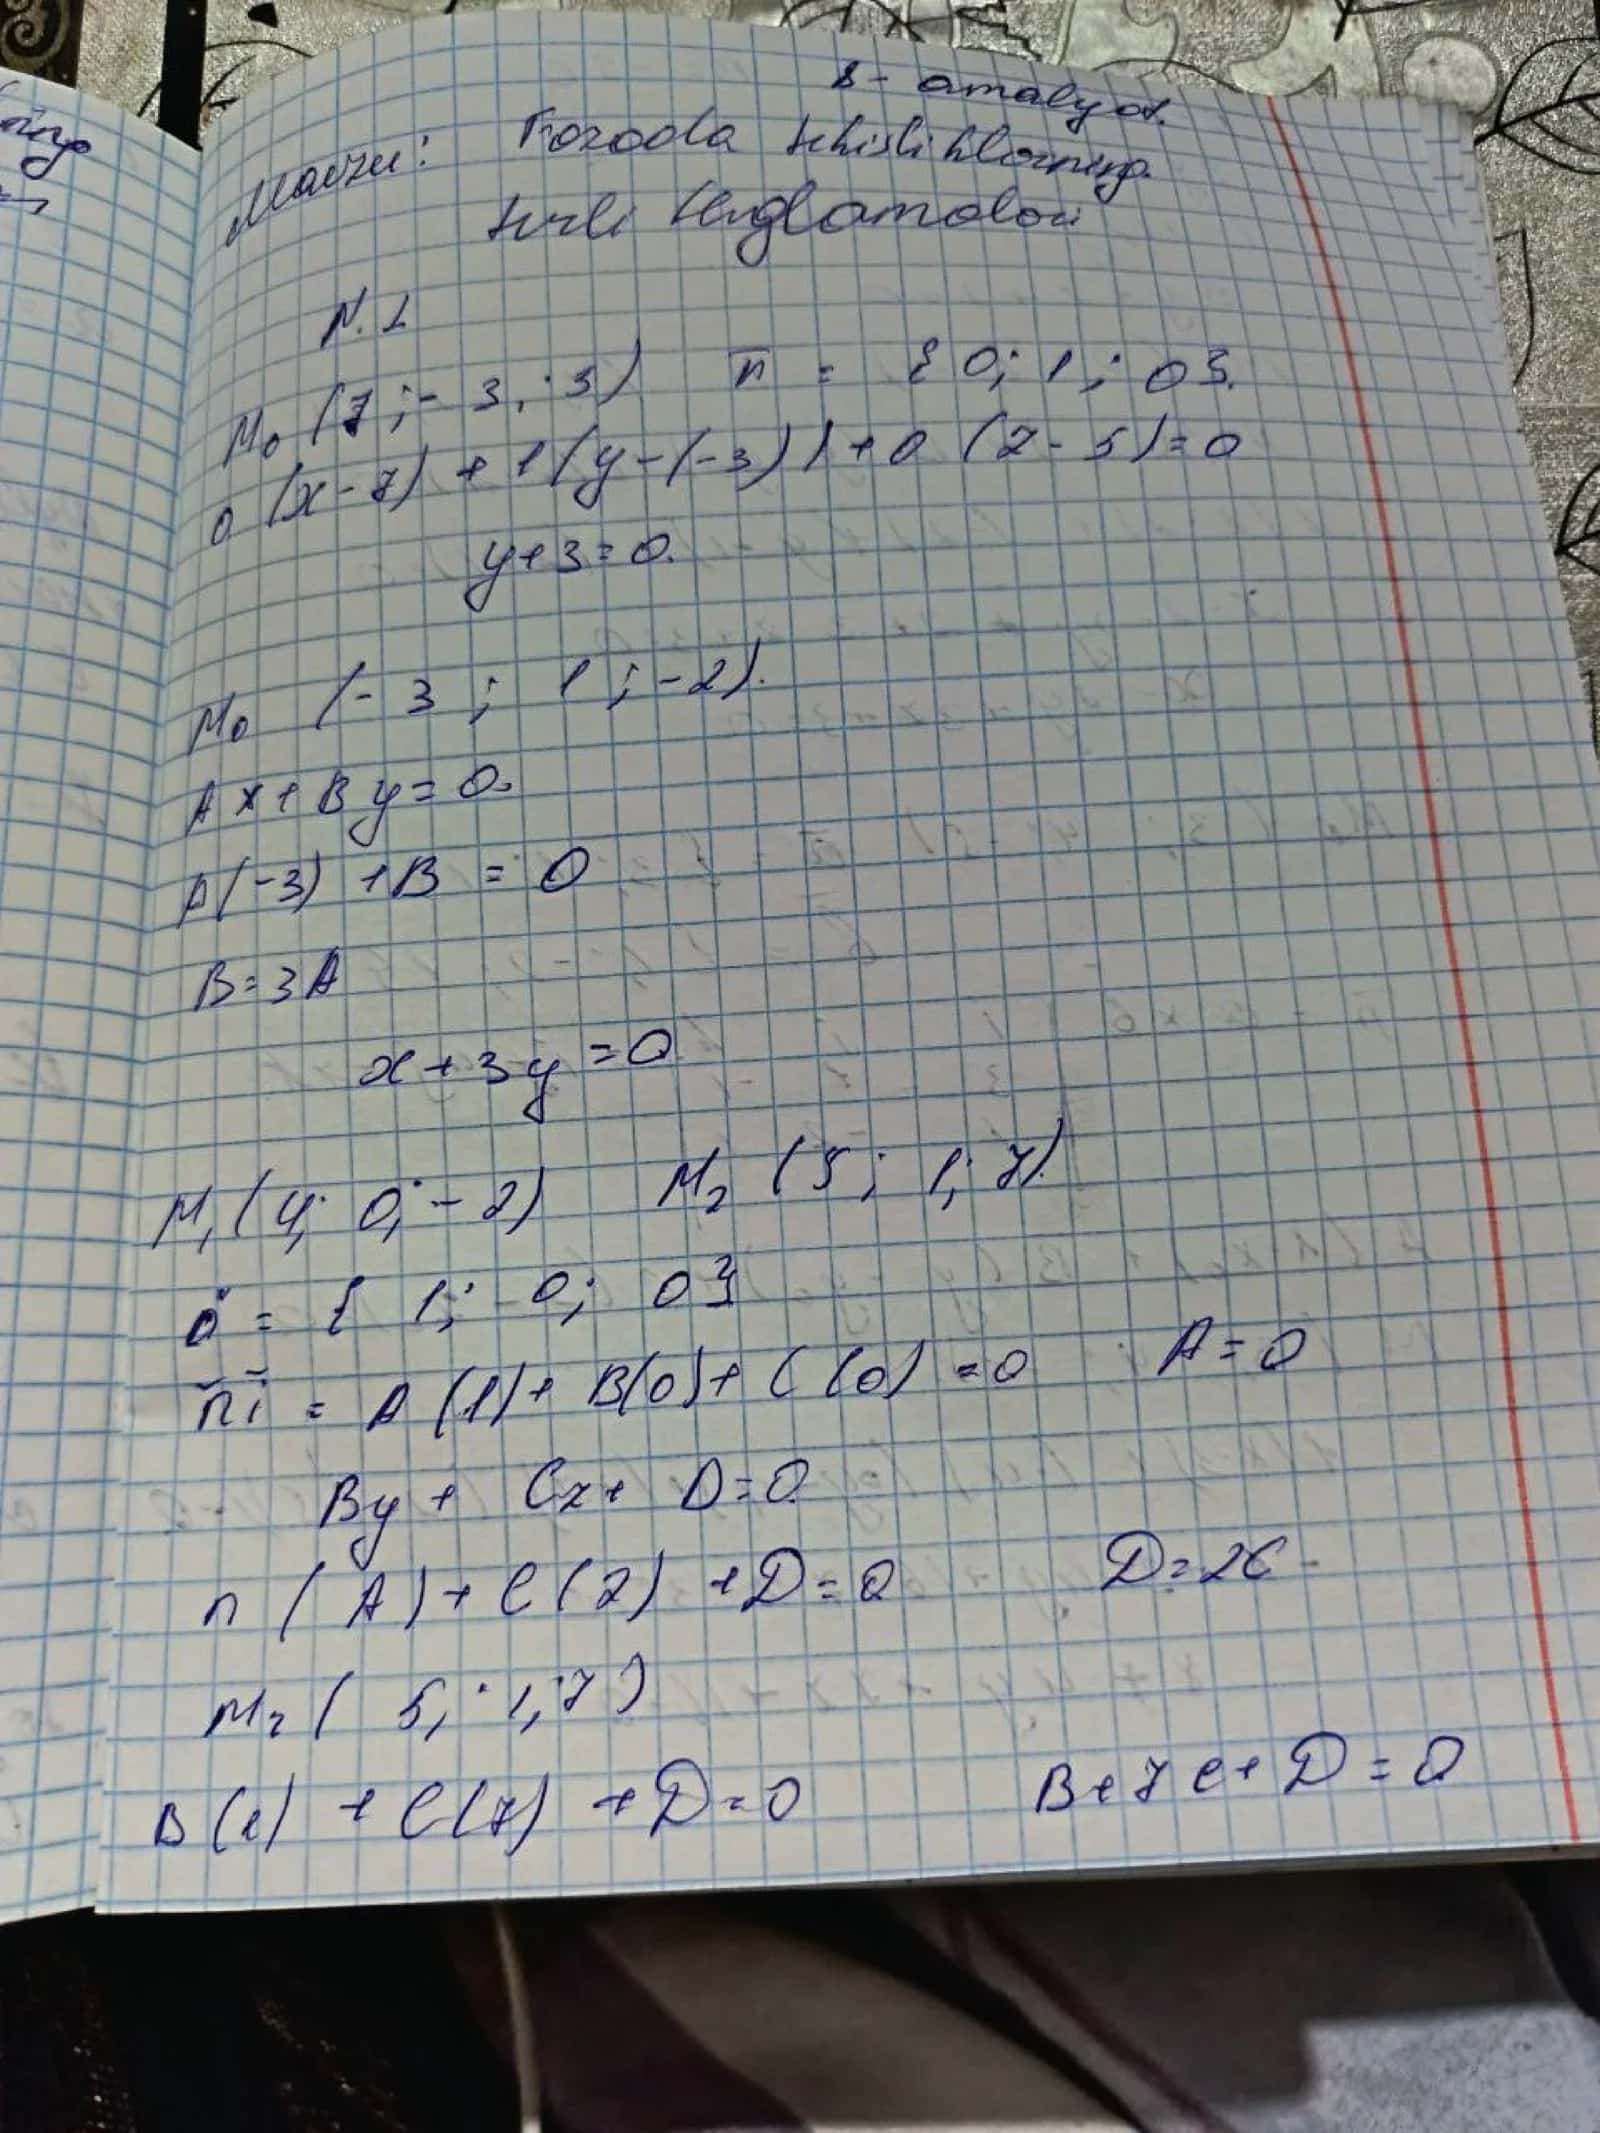 8-amalyot.
Mavzu: Fazoda tekisliklarning
turli tenglamalari
N.1
M₀ (7; -3; 3) n̅ = {0; 1; 0}.
0 (x-7) + 1(y-(-3)) + 0 (z-5)=0
y+3=0.
M₀ (-3; 1; -2).
Ax+By=0.
A(-3) +B = 0
B=3A
x+3y=0
M₁(4; 0; -2) M₂ (5; 1; 7).
= { 1; 0; 0}
n̅i̅ = A(1)+ B(0)+ C(0) =0 A=0
By + Cz+ D=0
n (A)+ C(2) +D=0 D=2C
M₂( 5; 1; 7)
B(1) + C(7) +D=0 B+7C+D=0